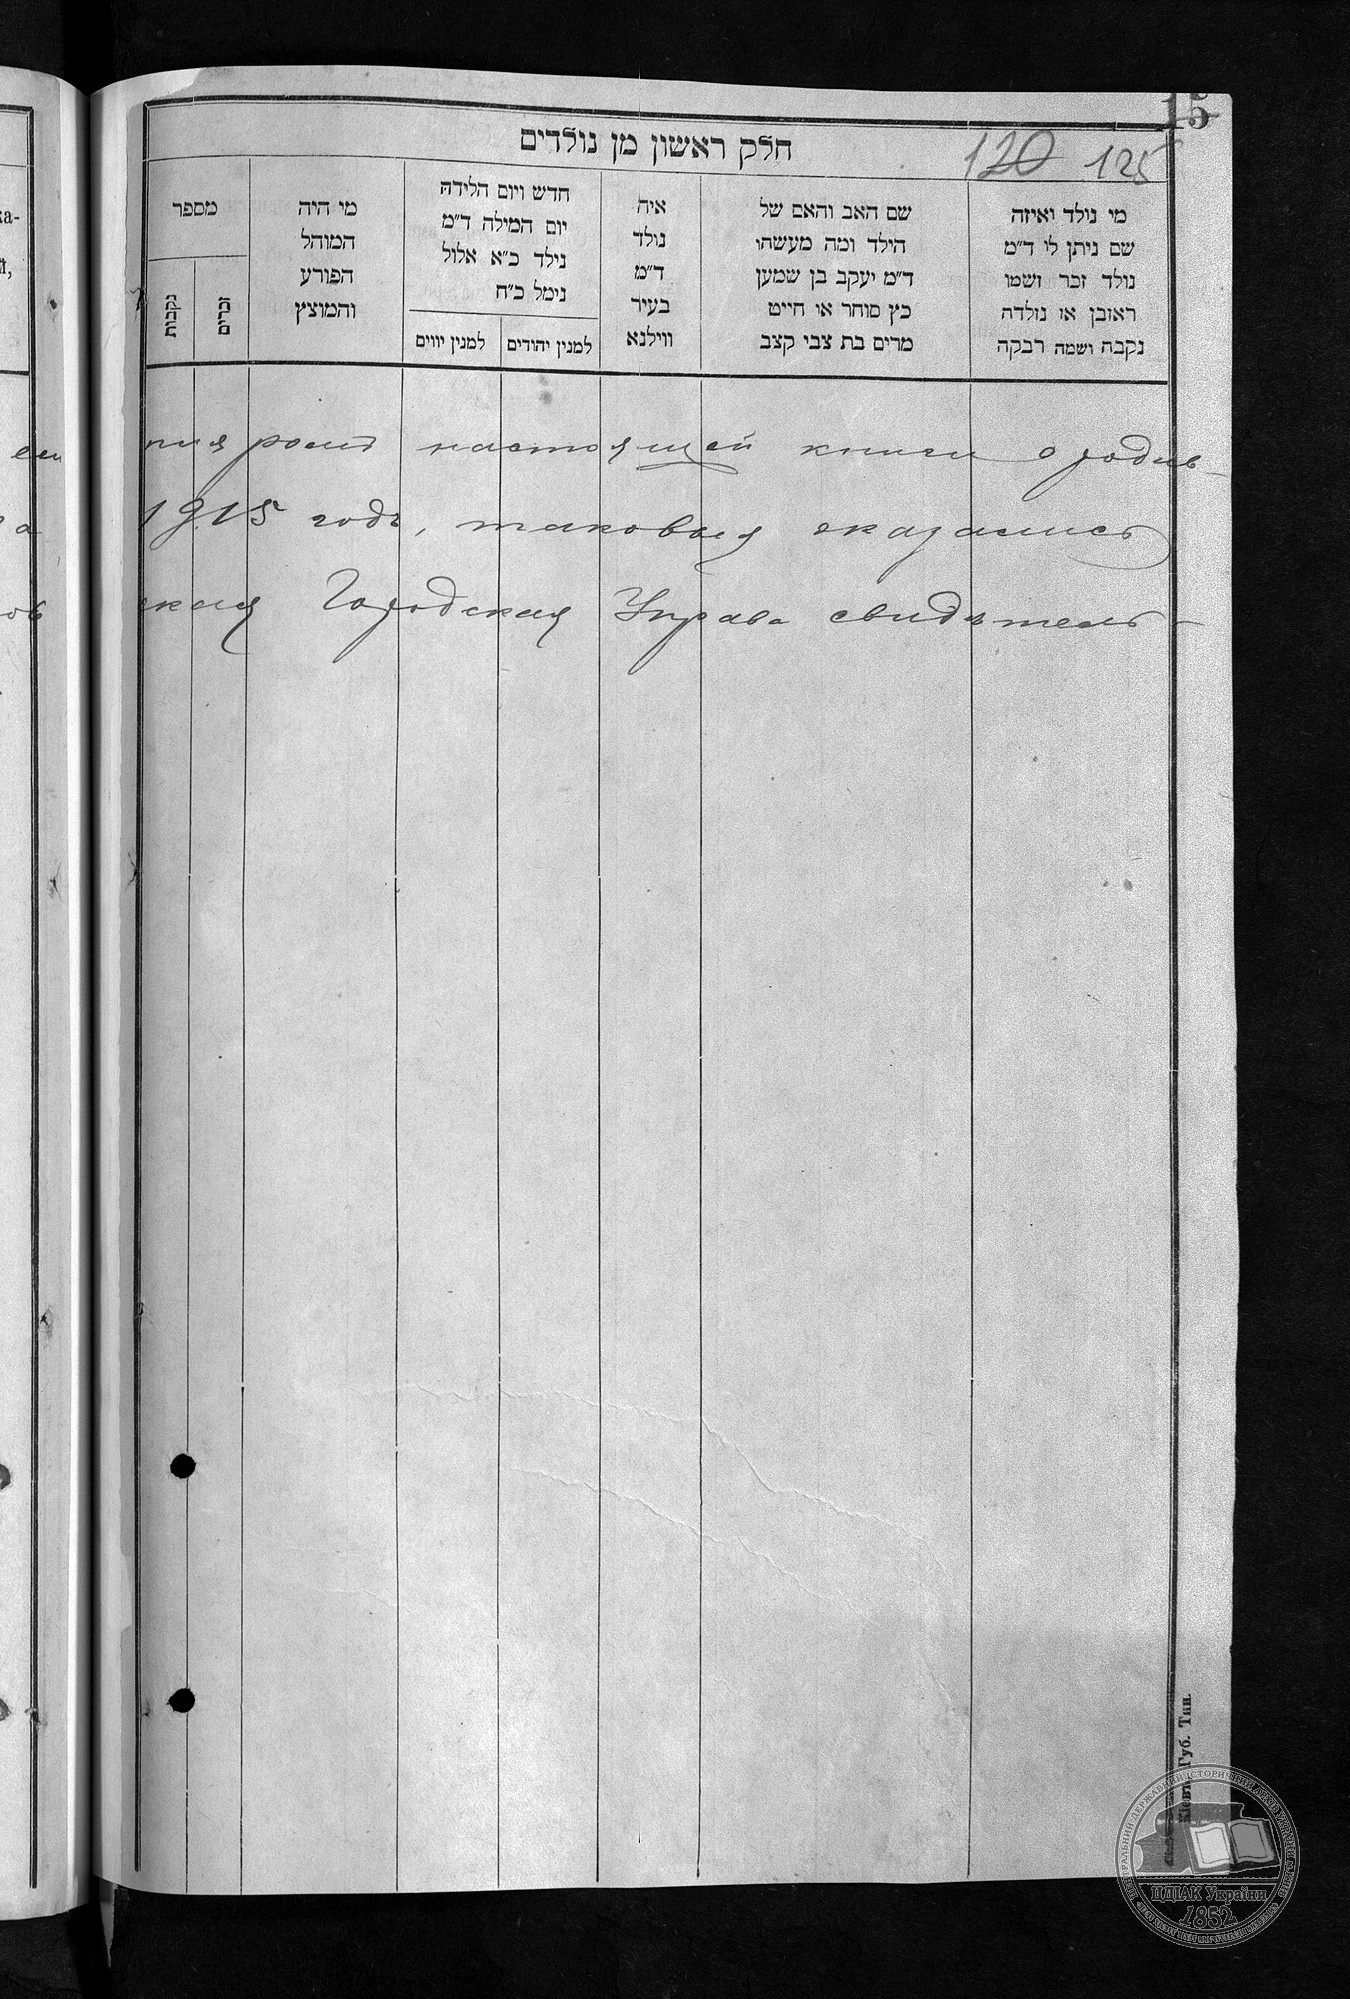 15
חלק ראשון מן נולדים
120 125
מי נולד ואיזה
שם ניתן לי ד״מ
נולד זכר ושמו
ראובן או נולדה
נקבה ושמה רבקה
שם האב והאם של
הילד ומה מעשהו
ד״מ יעקב בן שמעון
כץ סוחר או חייט
מרים בת צבי קצב
איה
נולד
ד״מ
בעיר
ווילנא
חדש ויום הלידה
יום המילה ד״מ
נילד כ״א אלול
נימל כ״ח
למנין יהודים
למנין יווים
מי היה
המוהל
הפורע
והמוצץ
מספר
זכרים
נקבות
ка-
настоящей книги о родив-
1915 годъ, таковыя оказались
ская Городская Управа свидѣтель-
Губ. Тип.
ЦЕНТРАЛЬНИЙ ДЕРЖАВНИЙ ІСТОРИЧНИЙ АРХІВ УКРАЇНИ
ЦДІАК України
1852